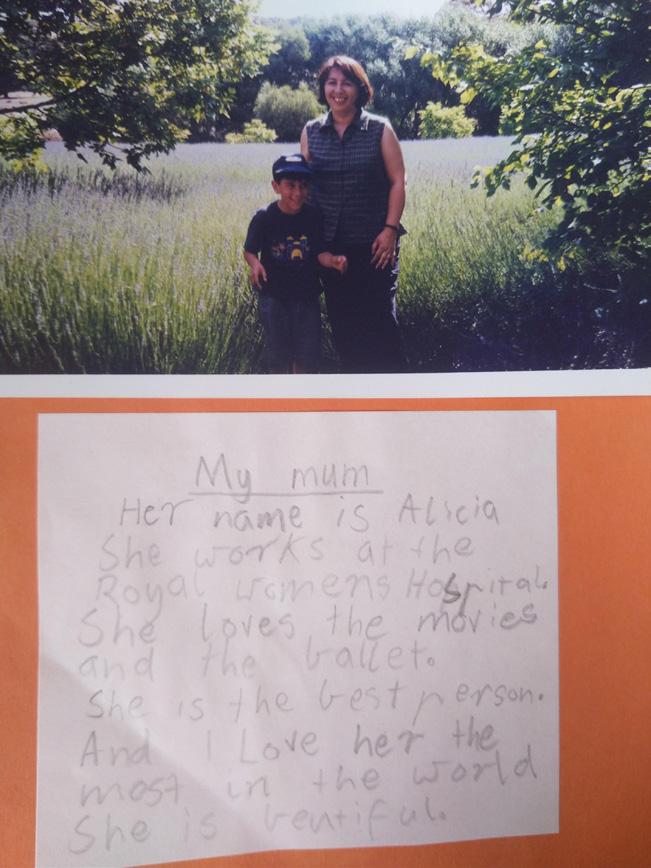 My mum
Her name is Alicia
She works at the
Royal womens Hospital.
She loves the movies
and the ballet.
She is the best person.
And I Love her the
most in the world
She is beutiful.